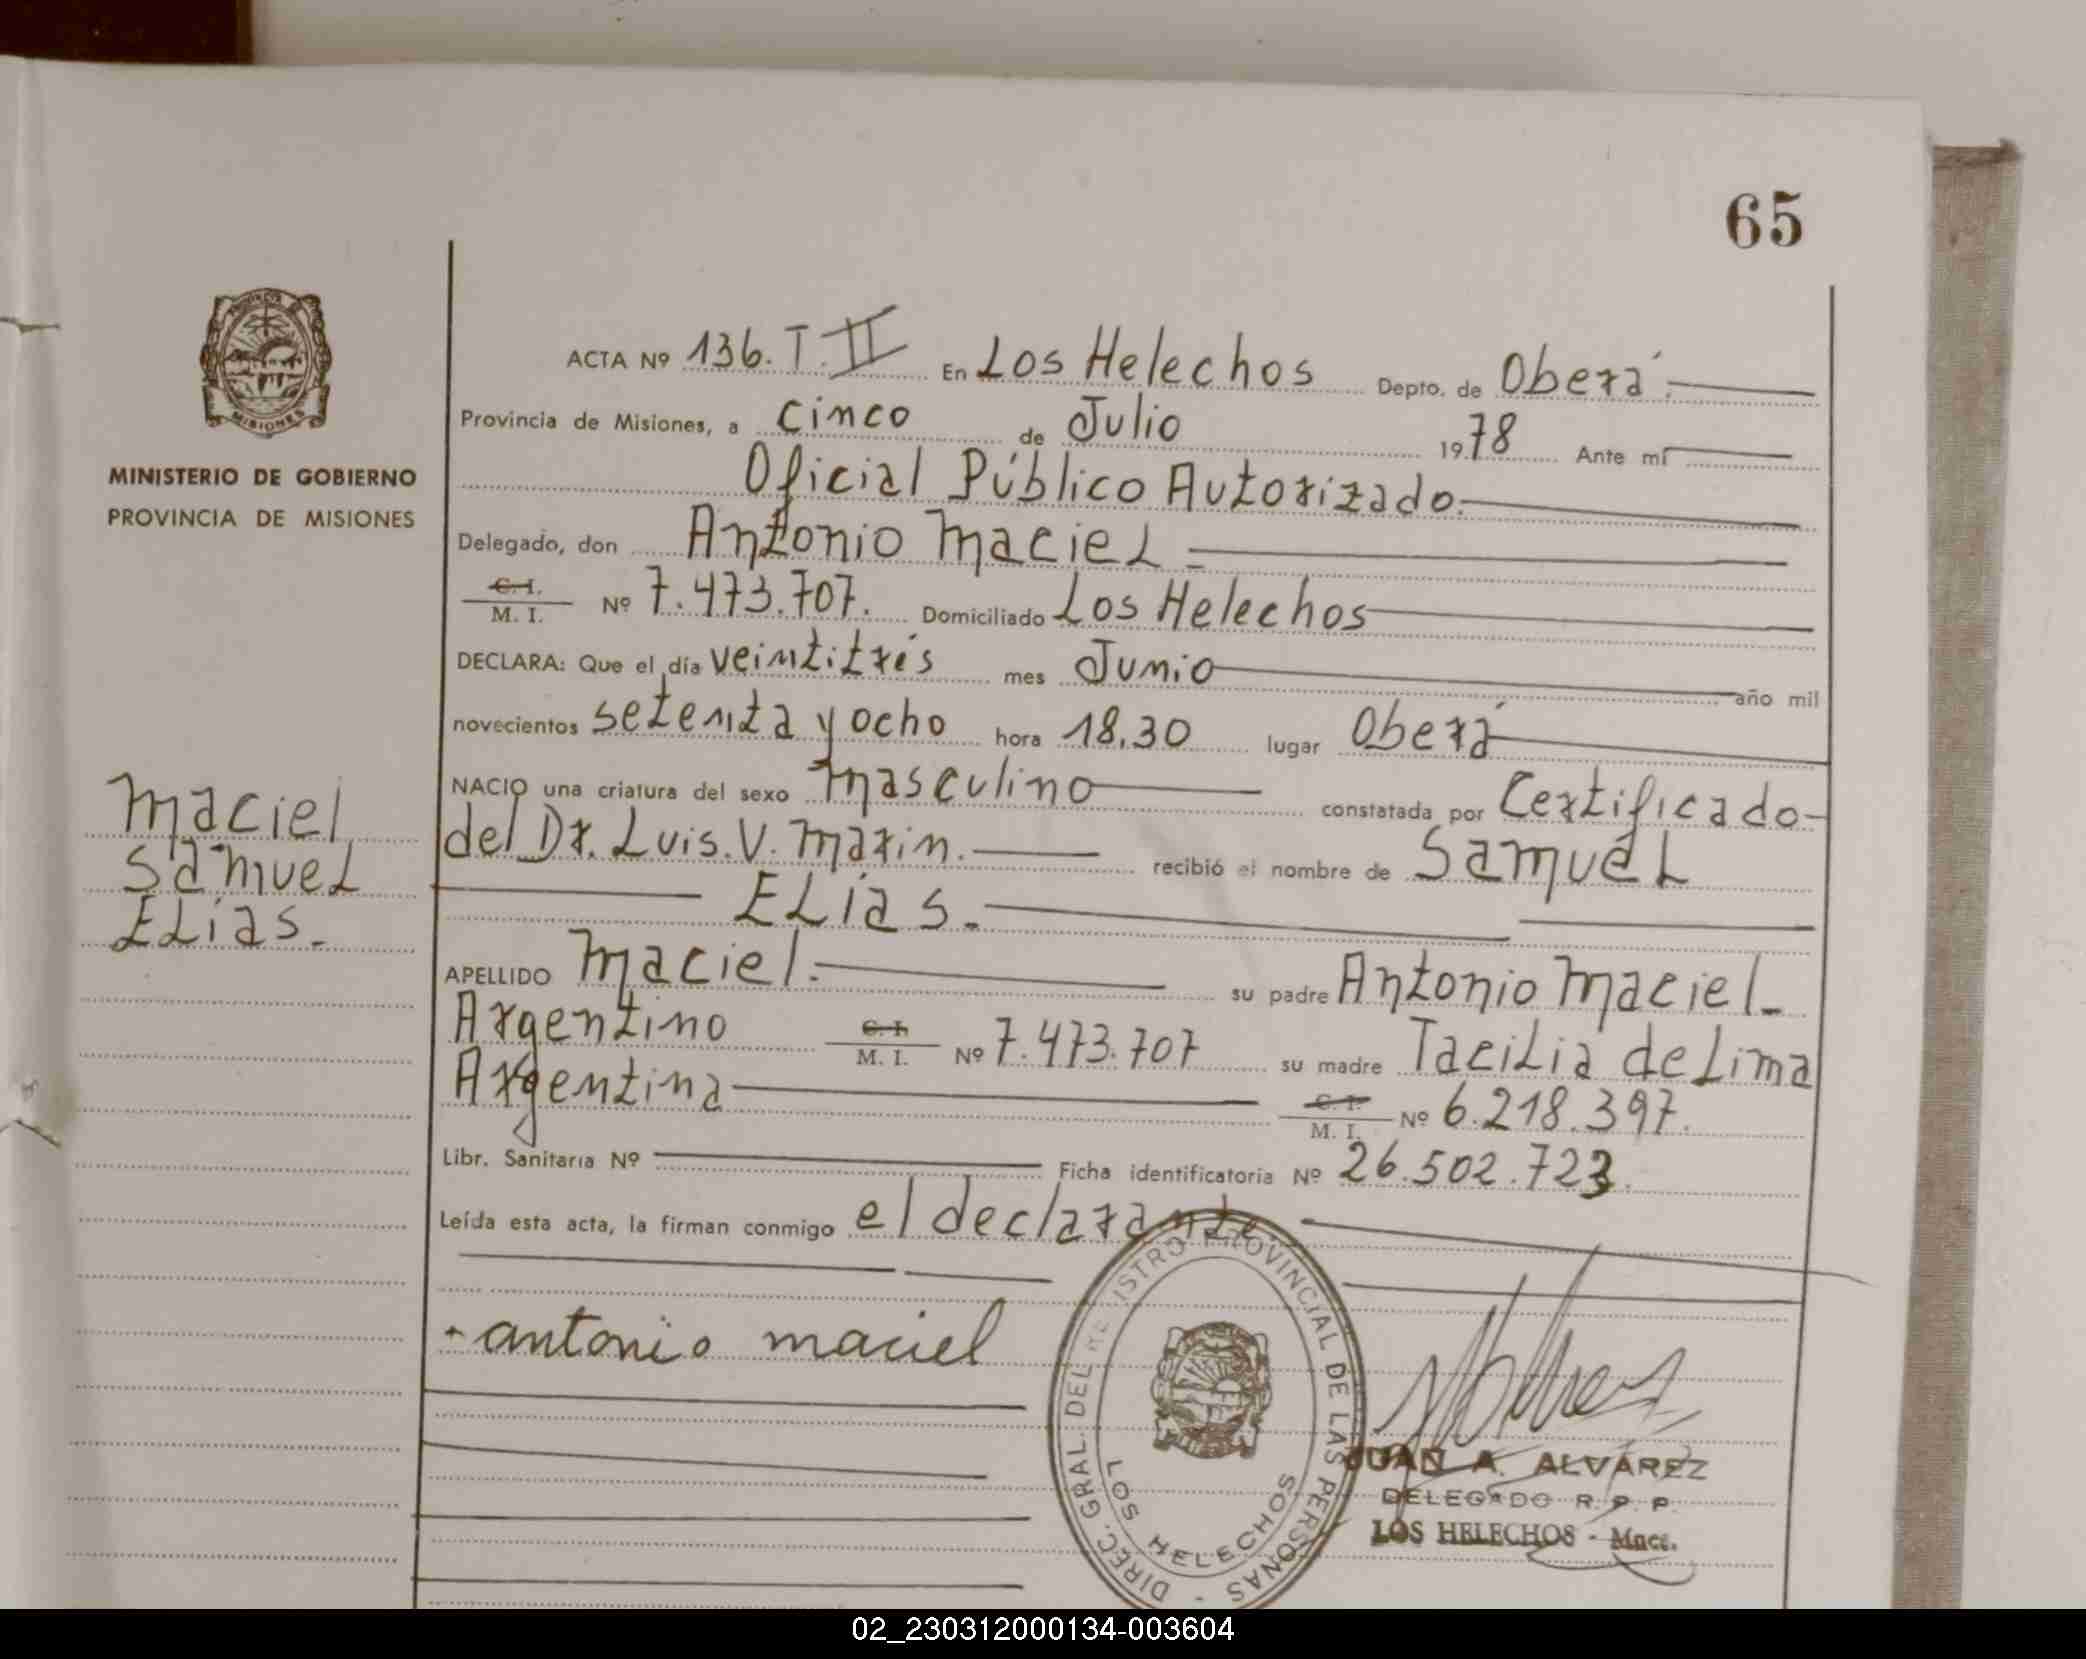 65
ACTA Nº 136. T. II En Los Helechos Depto. de Oberá.
Provincia de Misiones, a cinco de Julio 1978 Ante mí
Oficial Público Autorizado.
MINISTERIO DE GOBIERNO
PROVINCIA DE MISIONES
Delegado, don Antonio Maciel
C. I.
M. I. Nº 7.473.707. Domiciliado Los Helechos
DECLARA: Que el día veintitrés mes Junio año mil
novecientos setenta y ocho hora 18,30 lugar Oberá
NACIO una criatura del sexo masculino constatada por Certificado
del Dr. Luis. V. Marin. recibió el nombre de Samuel
Elías.
Maciel
Samuel
Elías.
APELLIDO Maciel. su padre Antonio Maciel
Argentino C. I. M. I. Nº 7.473.707 su madre Tacilia de Lima
Argentina C. I. M. I. Nº 6.218.397.
Libr. Sanitaria Nº Ficha identificatoria Nº 26.502.723.
Leída esta acta, la firman conmigo el declarante.
antonio maciel
DIREC. GRAL. DEL REGISTRO PROVINCIAL DE LAS PERSONAS
LOS HELECHOS
JUAN A. ALVAREZ
DELEGADO R. P. P.
LOS HELECHOS - Mnes.
MISIONES
02_230312000134-003604